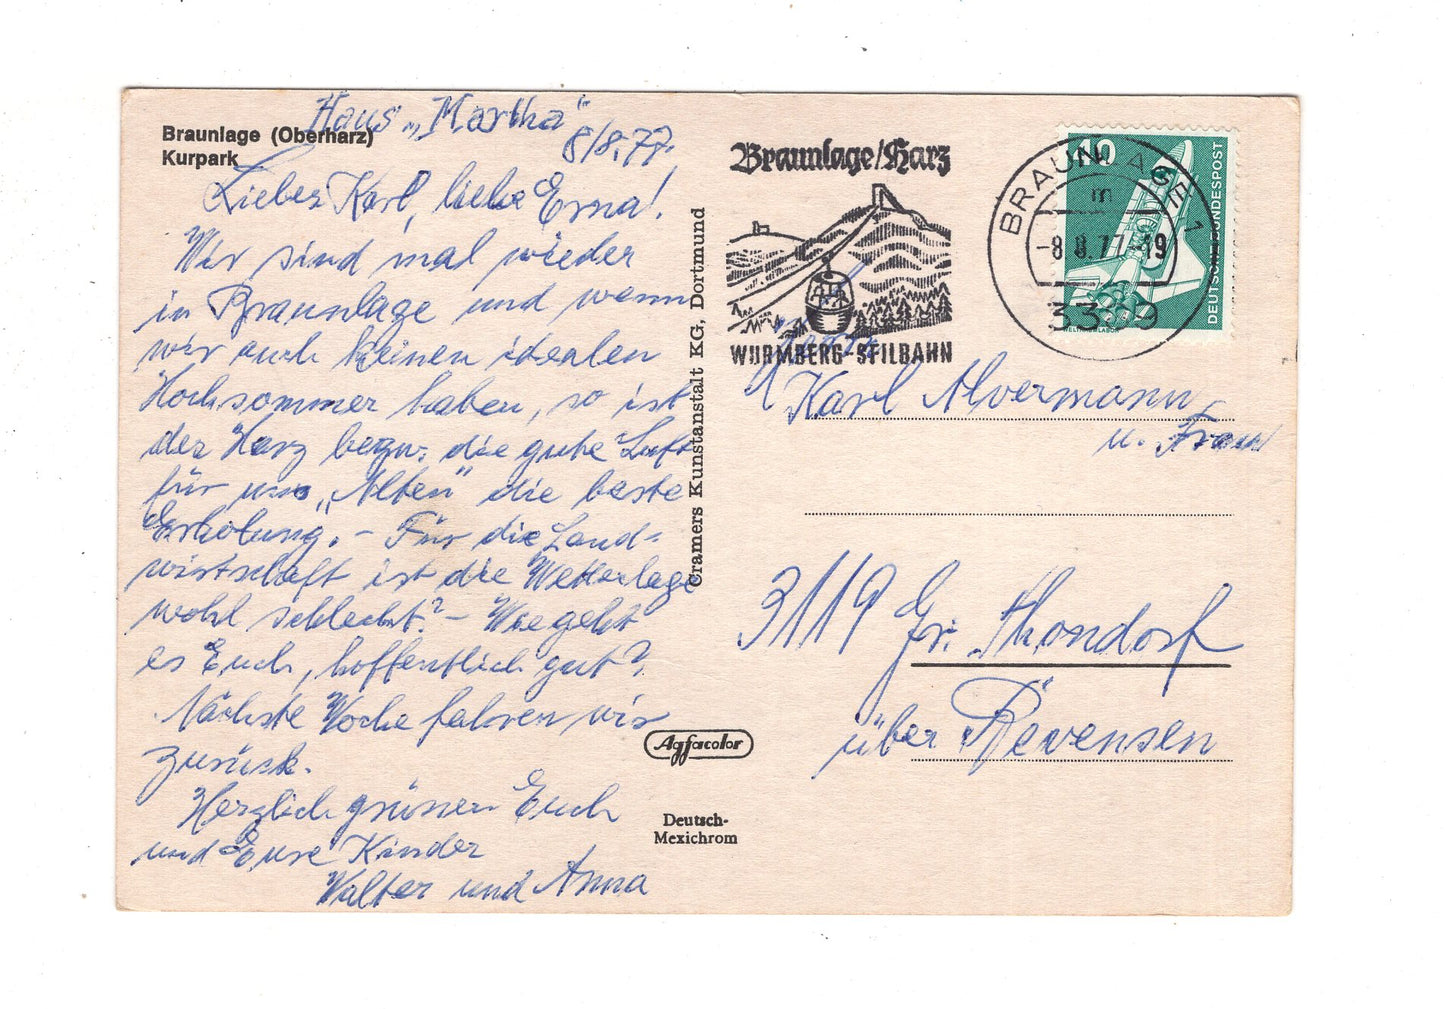 Haus „Martha“
Braunlage (Oberharz)
Kurpark
8/8.77.
Lieber Karl, liebe Erna!
Wir sind mal wieder
in Braunlage und wenn
wir auch keinen idealen
Hochsommer haben, so ist
der Harz bezw. die gute Luft
für uns „Alten“ die beste
Erholung. – Für die Land=
wirtschaft ist die Wetterlage
wohl schlecht? – Wie geht
es Euch, hoffentlich gut?
Nächste Woche fahren wir
zurück.
Herzlich grüssen Euch
und Eure Kinder
Walter und Anna
Cramers Kunstanstalt KG, Dortmund
Agfacolor
Deutsch-
Mexichrom
Braunlage/Harz
WURMBERG-SEILBAHN
BRAUNLAGE 1
m
-8.8.77-19
3389
40
DEUTSCHE BUNDESPOST
WELTRAUMLABOR
Karl Alvermann
u. Frau
3119 Gr. Thondorf
über Bevensen